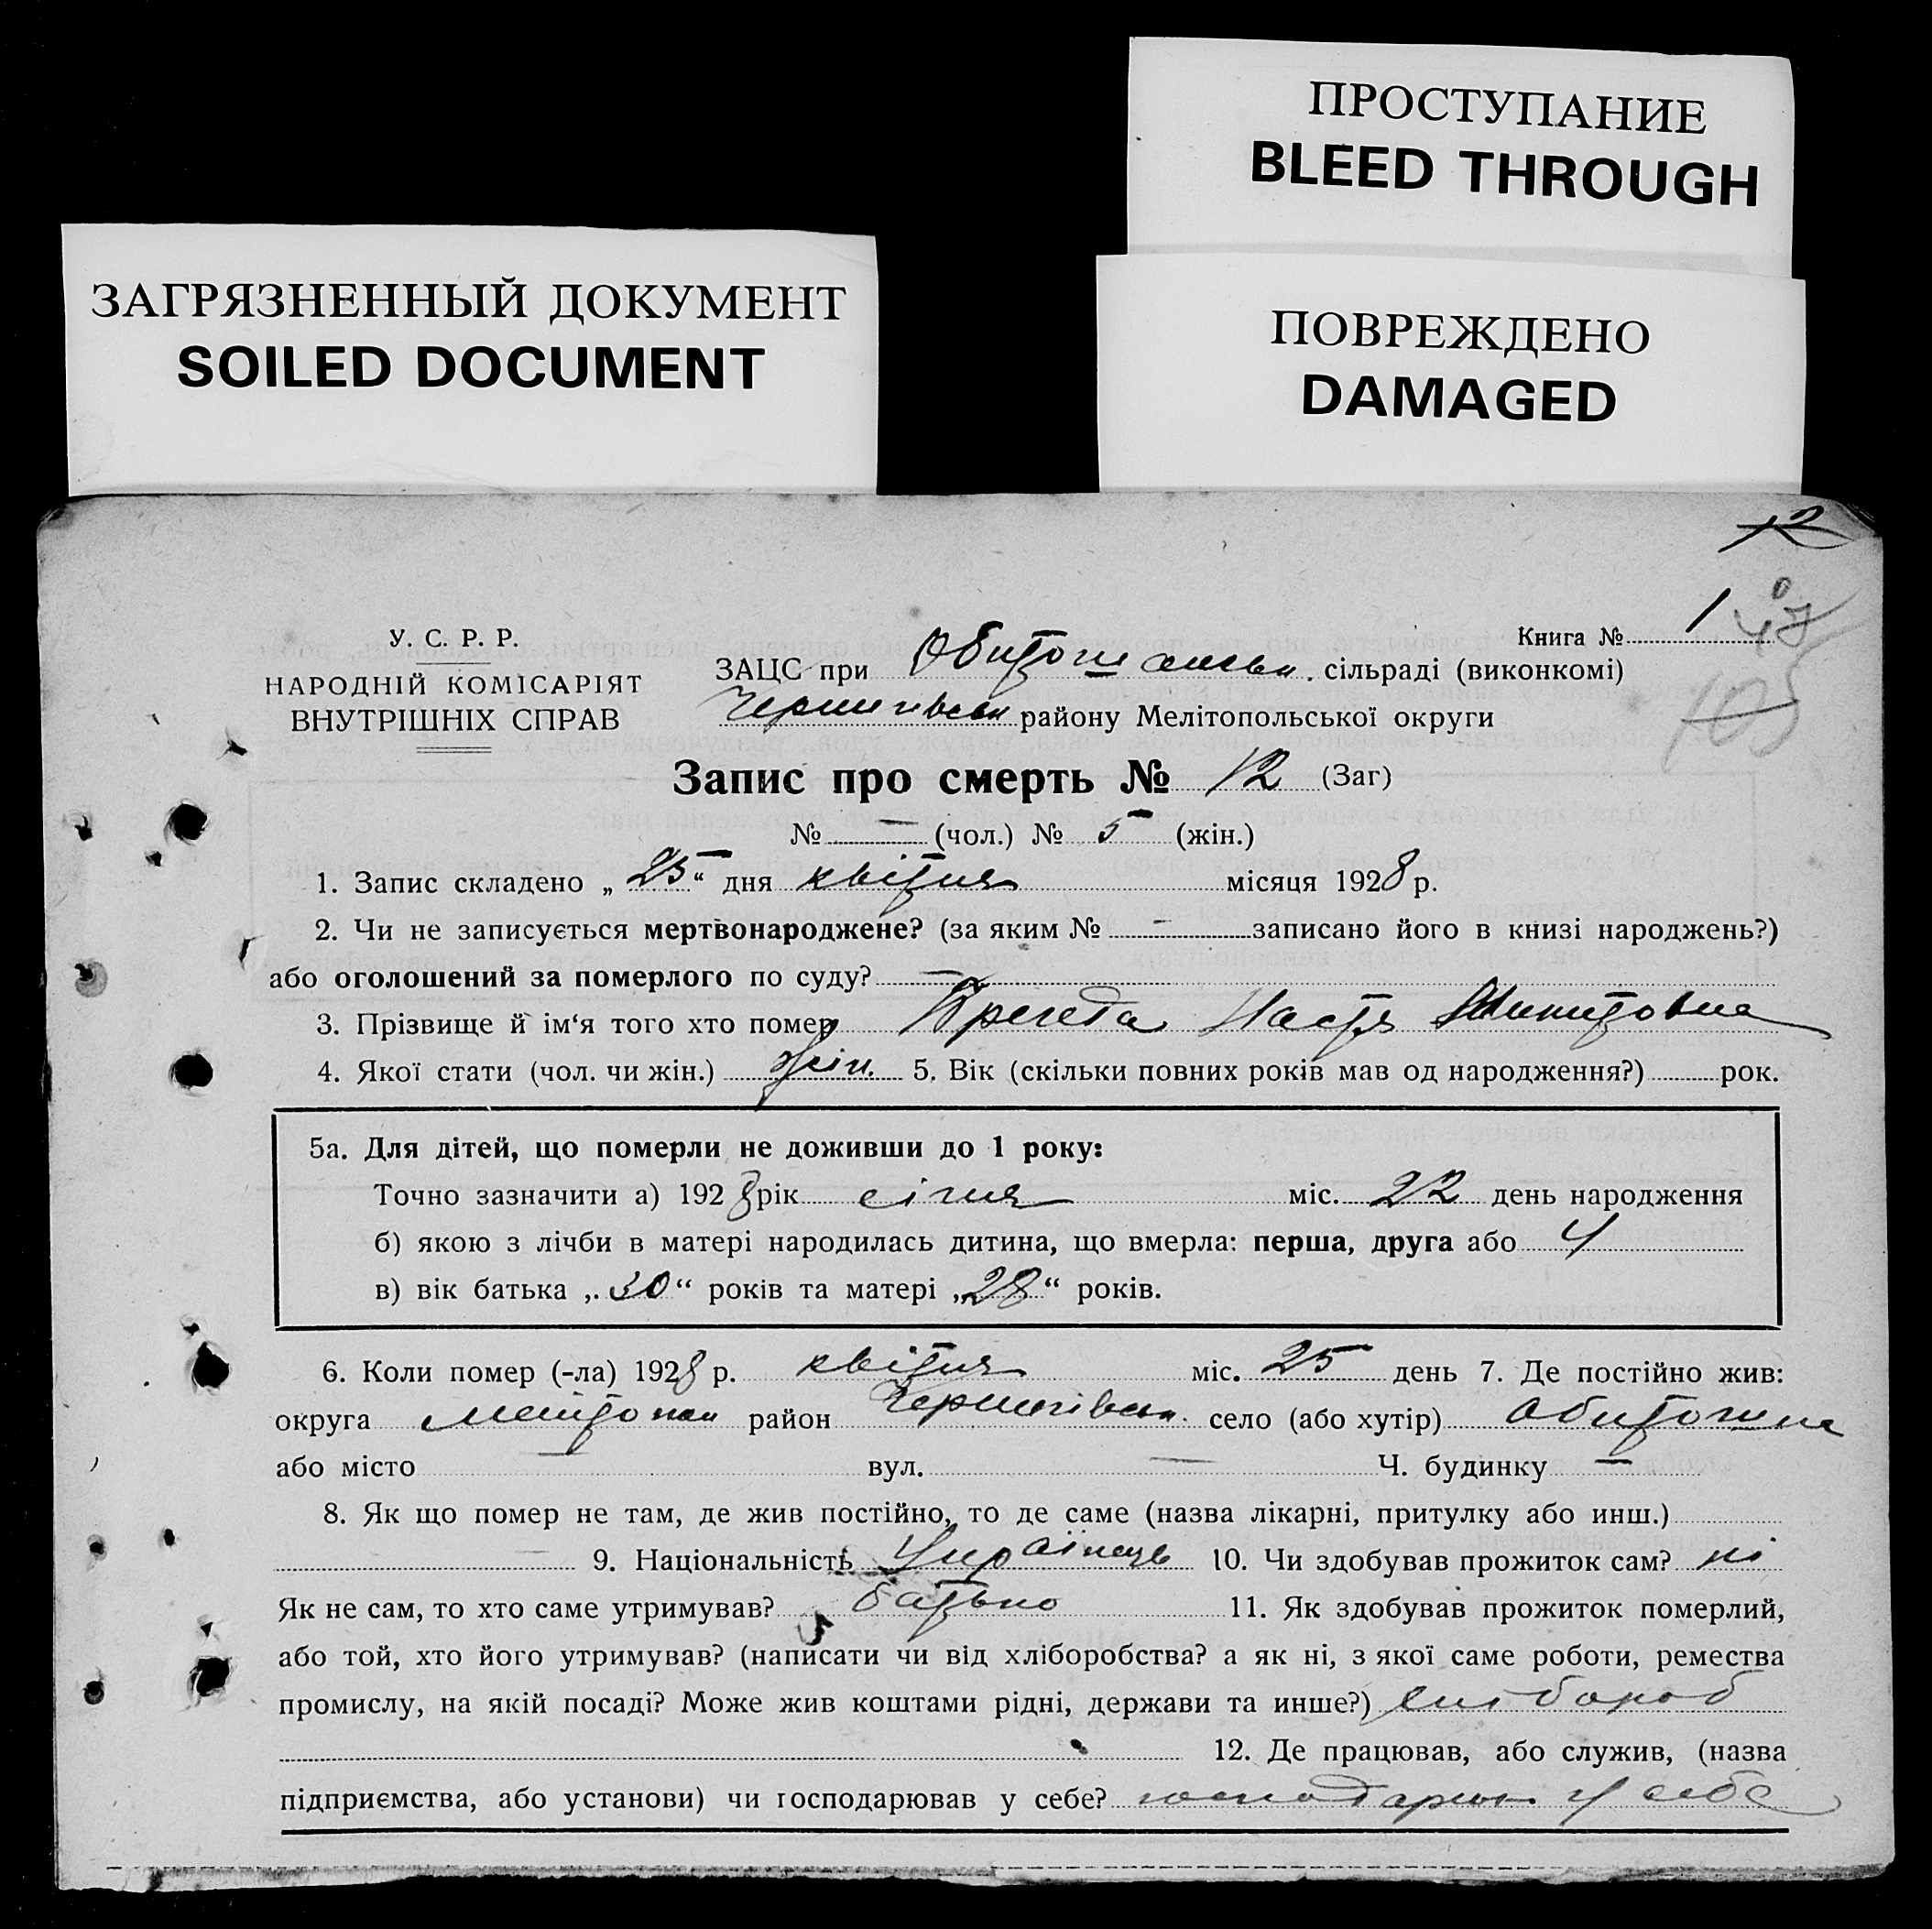 ПРОСТУПАНИЕ
BLEED THROUGH
ЗАГРЯЗНЕННЫЙ ДОКУМЕНТ
SOILED DOCUMENT
ПОВРЕЖДЕНО
DAMAGED
12
У. С. Р. Р.
НАРОДНІЙ КОМІСАРІЯТ
ВНУТРІШНІХ СПРАВ
Книга № 1
105
ЗАЦС при сільраді (виконкомі)
Чернигівськ району Мелітопольської округи
Запис про смерть № 12 (Заг)
№ — (чол.) № 5 (жін.)
1. Запис складено „ 25 “ дня квітня місяця 1928 р.
2. Чи не записується мертвонароджене? (за яким № - записано його в книзі народжень?)
або оголошений за померлого по суду? —
3. Прізвище й ім‘я того хто помер Настя Микитовна
4. Якої стати (чол. чи жін.) жін. 5. Вік (скільки повних років мав од народження?) рок.
5а. Для дітей, що померли не доживши до 1 року:
Точно зазначити а) 1928 рік січня міс. 22 день народження
б) якою з лічби в матері народилась дитина, що вмерла: перша, друга або 4
в) вік батька „ 30 “ років та матері „ 28 “ років.
6. Коли помер (-ла) 1928 р. квітня міс. 25 день 7. Де постійно жив:
округа Мелітопол район Чернигівськ. село (або хутір) Обиточне
або місто — вул. — Ч. будинку —
8. Як що помер не там, де жив постійно, то де саме (назва лікарні, притулку або инш.)
— 9. Національність Українець 10. Чи здобував прожиток сам? ні
Як не сам, то хто саме утримував? батько 11. Як здобував прожиток померлий,
або той, хто його утримував? (написати чи від хліборобства? а як ні, з якої саме роботи, ремества
промислу, на якій посаді? Може жив коштами рідні, держави та инше?) хлібороб
12. Де працював, або служив, (назва
підприємства, або установи) чи господарював у себе? господарює у себе